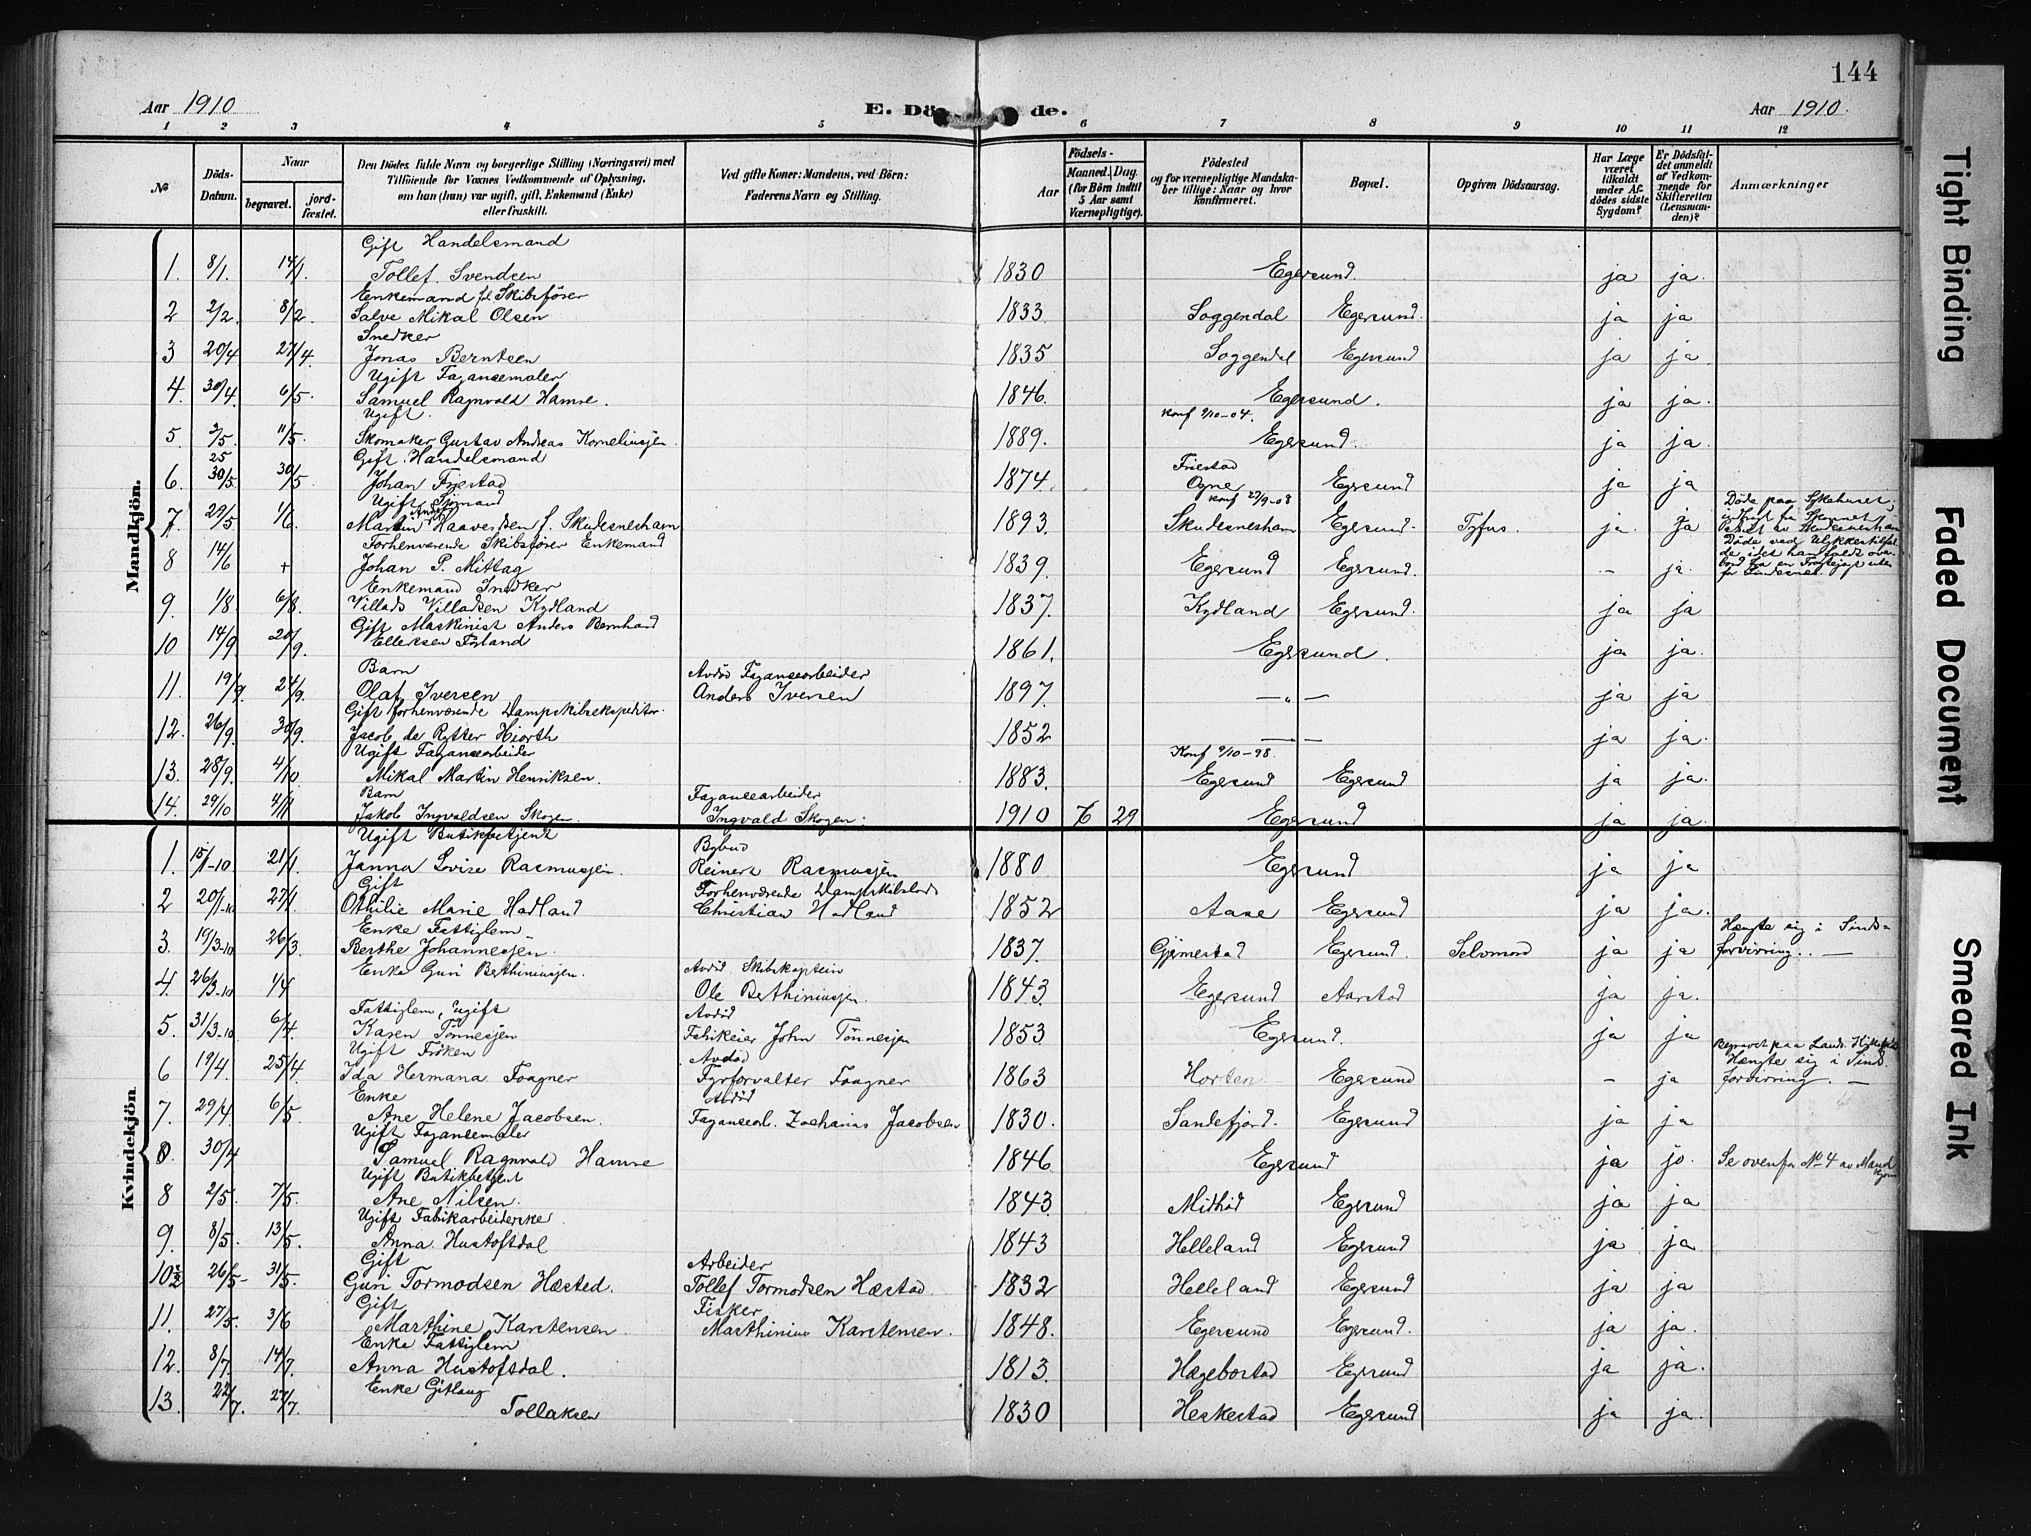 144
Aar 1910
E. Dö de.
Aar 1910.
1 2 3 4 5 6 7 8 9 10 11 12
№
Döds-Datum.
Naar
begravet.
jord-fæstet.
Den Dödes fulde Navn og borgerlige Stilling (Næringsvei) med
Tilföiende for Voxnes Vedkommende af Oplysning,
om han (hun) var ugift, gift, Enkemand (Enke)
eller fraskilt.
Ved gifte Koner: Mandens, ved Börn:
Faderens Navn og Stilling.
Födsels-
Aar
Maaned. Dag.
(for Börn indtil
5 Aar samt
Værnepligtige).
Födested
og for værnepligtige Mandska-
ber tillige: Naar og hvor
konfirmeret.
Bopæl.
Opgiven Dödsaarsag.
Har Læge
været
tilkaldt
under Af-
dödes sidste
Sygdom?
Er Dödsfal-
det anmeldt
af Vedkom-
mende for
Skifteretten
(Lensman-
den)?
Anmærkninger
Mandkjön.
Gift Handelsmand
1. 8/1. 14/1. Tollef Svendsen 1830 Egersund. ja ja.
Enkemand f. Skibsfører
2 2/2. 8/2. Salve Mikal Olsen 1833 Soggendal Egersund. ja ja
Snedker
3 20/4 27/4 Jonas Berntsen 1835 Soggendal Egersund ja ja
Ugift Fajansemaler
4. 30/4. 6/5. Samuel Ragnvald Hamre. 1846. Egersund. ja ja.
Ugift. Konf 2/10-04.
5. 2/5. 11/5. Skomaker Gustav Andreas Korneliusjen. 1889. Egersund. ja ja.
25 Gift. Handelsmand Friestad
6. 30/5. 30/5. Johan Friestad 1874. Ogne Egersund ja ja
Ugift Sjømand Konf 27/9-08
7. 29/5 1/6. Martin Haaversen f. Skudesneshavn 1893. Skudesneshavn Egersund. Tyfus. ja. ja
Døde paa Sykehuset,
Forhenværende Skibsfører Enkemand
8 14/6 + Johan P. Mittag 1839. Egersund Egersund. - ja.
Døde ved Ulykkestilfæl-
de idet han faldt over-
bord fra en Fragtejagt uten
for Lindesnes.
Enkemand Snedker
9. 1/8. 6/8. Villads Villadsen Kydland 1837. Kydland Egersund. ja ja
Gift Maskinist Anders Bernhard
10 14/9. 20/9. Ellertsen Førland 1861. Egersund. ja ja.
Barn Avdød Fajansearbeider
11. 19/9. 24/9. Olaf Iversen Anders Iversen 1897. —"— ja ja
Gift forhenværende Dampskibsekspeditør.
12. 26/9. 30/9. Jacob de Rytter Hiorth 1852 —"— ja ja.
Ugift Fajansearbeider Konf 2/10-98.
13. 28/9. 4/10 Mikal Martin Henriksen. 1883. Egersund Egersund ja ja.
Barn Fajansearbeider
14. 29/10 4/11 Jakob Ingvaldsen Skogen. Ingvald Skogen. 1910 6 29 Egersund ja ja.
Kvindekjön
Ugift Butikbetjent Bybud
1. 15/1-10 21/1. Janna Lovise Rasmusjen. Reinert Rasmusjen 1880 Egersund ja ja
Gift Forhenværende Dampskibslods
2 20/1-10 27/1. Othilie Marie Hadland Christian Hadland 1852 Aase Egersund ja ja.
Enke Fattiglem Hængte sig i Sinds-
3. 19/3-10 26/3. Berthe Johannesjen. 1837. Gjemestad Egersund. Selvmord ja ja forvirring. —
Enke Guri Berthiniusjen. Avdød Skibskaptein
4. 26/3-10 1/4 Ole Berthiniusjen. 1843. Egersund Aarstad ja ja.
Fattiglem, ugift Avdød
5. 31/3-10 6/4. Karen Tønnesjen John Tønnesjen 1853 Egersund. ja ja
Ugift Frøken Avdød Hængte sig i Sinds
6 19/4. 25/4. Ida Hermana Faagner Fyrforvalter Faagner 1863 Horten Egersund - ja forvirring. —
Enke Avdød
7. 29/4. 6/5. Ane Helene Jacobsen. Fajansearb. Zacharias Jacobsen 1830. Sandefjord. Egersund ja ja
Ugift Fajansemaler
8. 30/4 Samuel Ragnvald Hamre 1846. Egersund ja ja. Se ovenfor No 4 av Mand
kjøn
Ugift Butikbetjent
8 2/5. 7/5. Ane Nilsen. 1843. Midbød Egersund ja ja
Ugift Fabrikarbeiderske.
9. 8/5. 13/5. Anna Hustoftdal 1843 Helleland Egersund ja ja
Gift Arbeider
10 26/5- 31/5. Guri Tormodsen Hæsted. Tollef Tormodsen Hæstad. 1832 Helleland Egersund ja ja
Gift Fisker
11. 27/5. 3/6 Marthine Karstensen. Marthinius Karstensen. 1848. Egersund Egersund. ja ja.
Enke Fattiglem
12. 8/7. 14/7. Anna Hustoftdal. 1813. Hægebostad Egersund ja ja.
Enke Gitlaug
13. 22/7. 27/7. Tollaksen 1830 Heskestad Egersund ja ja.
Tight Binding
Faded Document
Smeared Ink